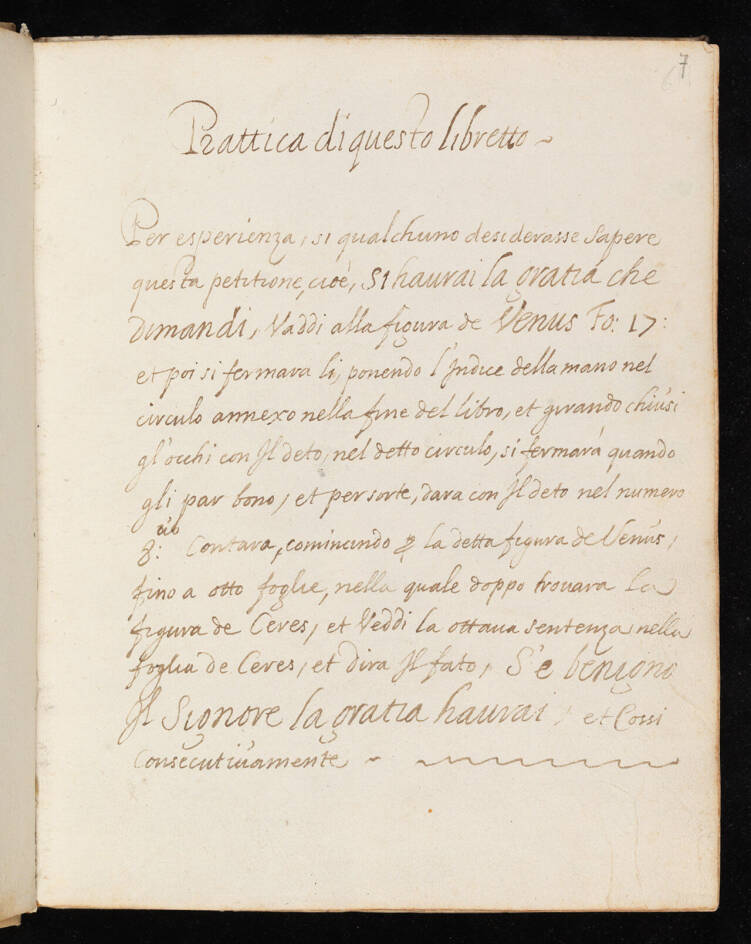 7
Prattica di questo libretto ~
Per esperienza, si qualchuno desiderasse sapere
questa petitione, cioè, Si haurai la gratia che
Dimandi, Vaddi alla figura de Venus Fo: 17:
et poi si fermara li, ponendo l'Indice della mano nel
circulo annexo nella fine del libro, et girando chiusi
gl'occhi con Il deto, nel detto circulo, si fermará quando
gli par bono, et per sorte, dara con Il deto nel numero
8: uo Contara, comincindo la detta figura de Venus,
fino a otto foglie, nella quale doppo trouara La
figura de Ceres, et Veddi la ottaua sentenza nella
foglia de Ceres, et dira Il fato, S'e benigno
Il Signore la gratia haurai, et Cossi
Consecutiuamente ~